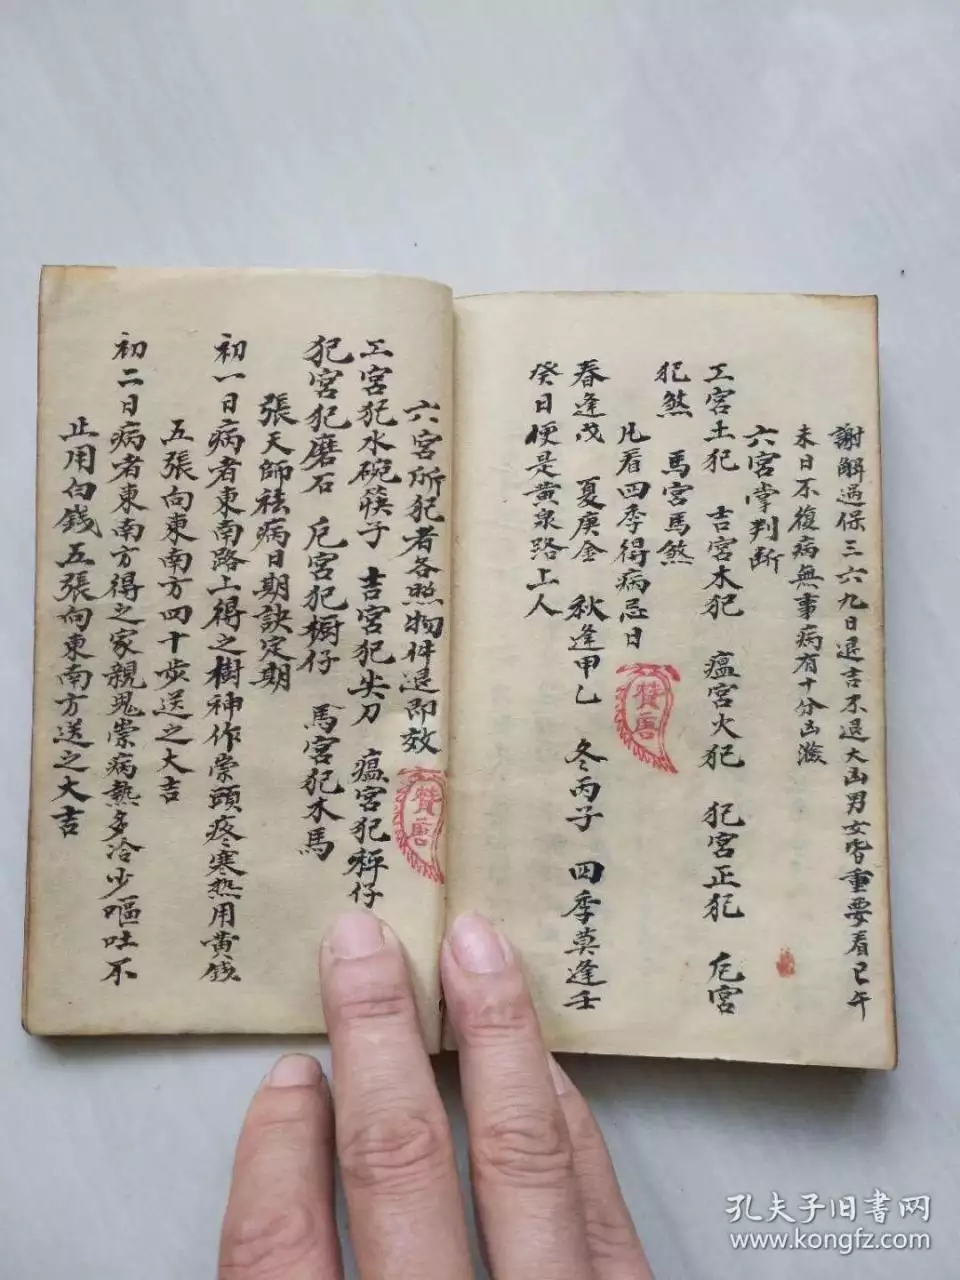 謝解過保三六九日退吉不退大凶男女皆重要看巳午
未日不復病無事病有十分凶險
六宮掌判断
工宮土犯 吉宮木犯 瘟宮火犯 犯宮正犯 危宮
犯煞 馬宮馬煞
凡看四季得病忌日
春逢戊 夏庚金 秋逢甲乙 冬丙子 四季莫逢壬
癸日便是黄泉路上人
贊唐
六宮所犯者各照物件退即效
工宮犯水碗筷子 吉宮犯尖刀 瘟宮犯秤仔
犯宮犯磨石 危宮犯橱仔 馬宮犯木馬
張天師祛病日期訣定期
初一日病者東南路上得之樹神作祟頭疼寒热用黄钱
五張向東南方四十步送之大吉
初二日病者東南方得之家親鬼祟病熱多冷少嘔吐不
止用白錢五張向東南方送之大吉
贊唐
孔夫子旧书网
www.kongfz.com